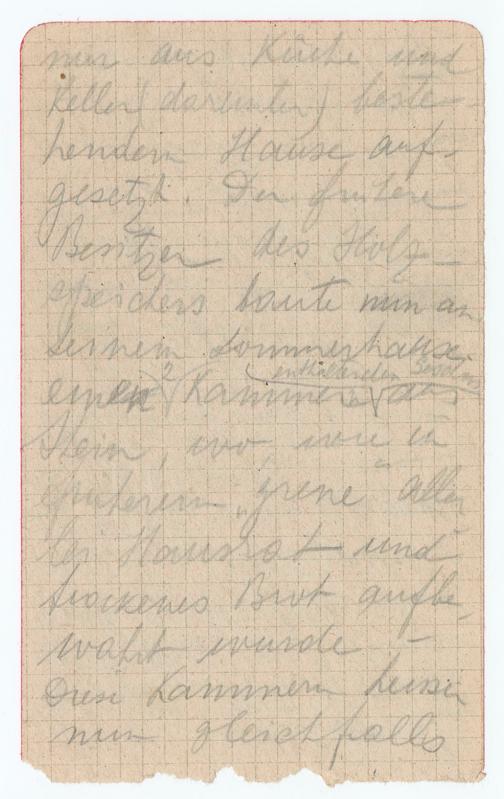 nur aus Küche und
Keller (darunter) beste-
hendem Hause auf-
gesetzt. Der frühere
Besitzer des Holz-
speichers baute nun an
seinem Sommerhause
enthaltenden
2 Kammern aus
Stein, wo, wie in
späterem „grene" aller
lei Hausrat und
trockenes Brot aufbe-
wahrt wurde –
Diese Kammern heissen
nun gleichfalls